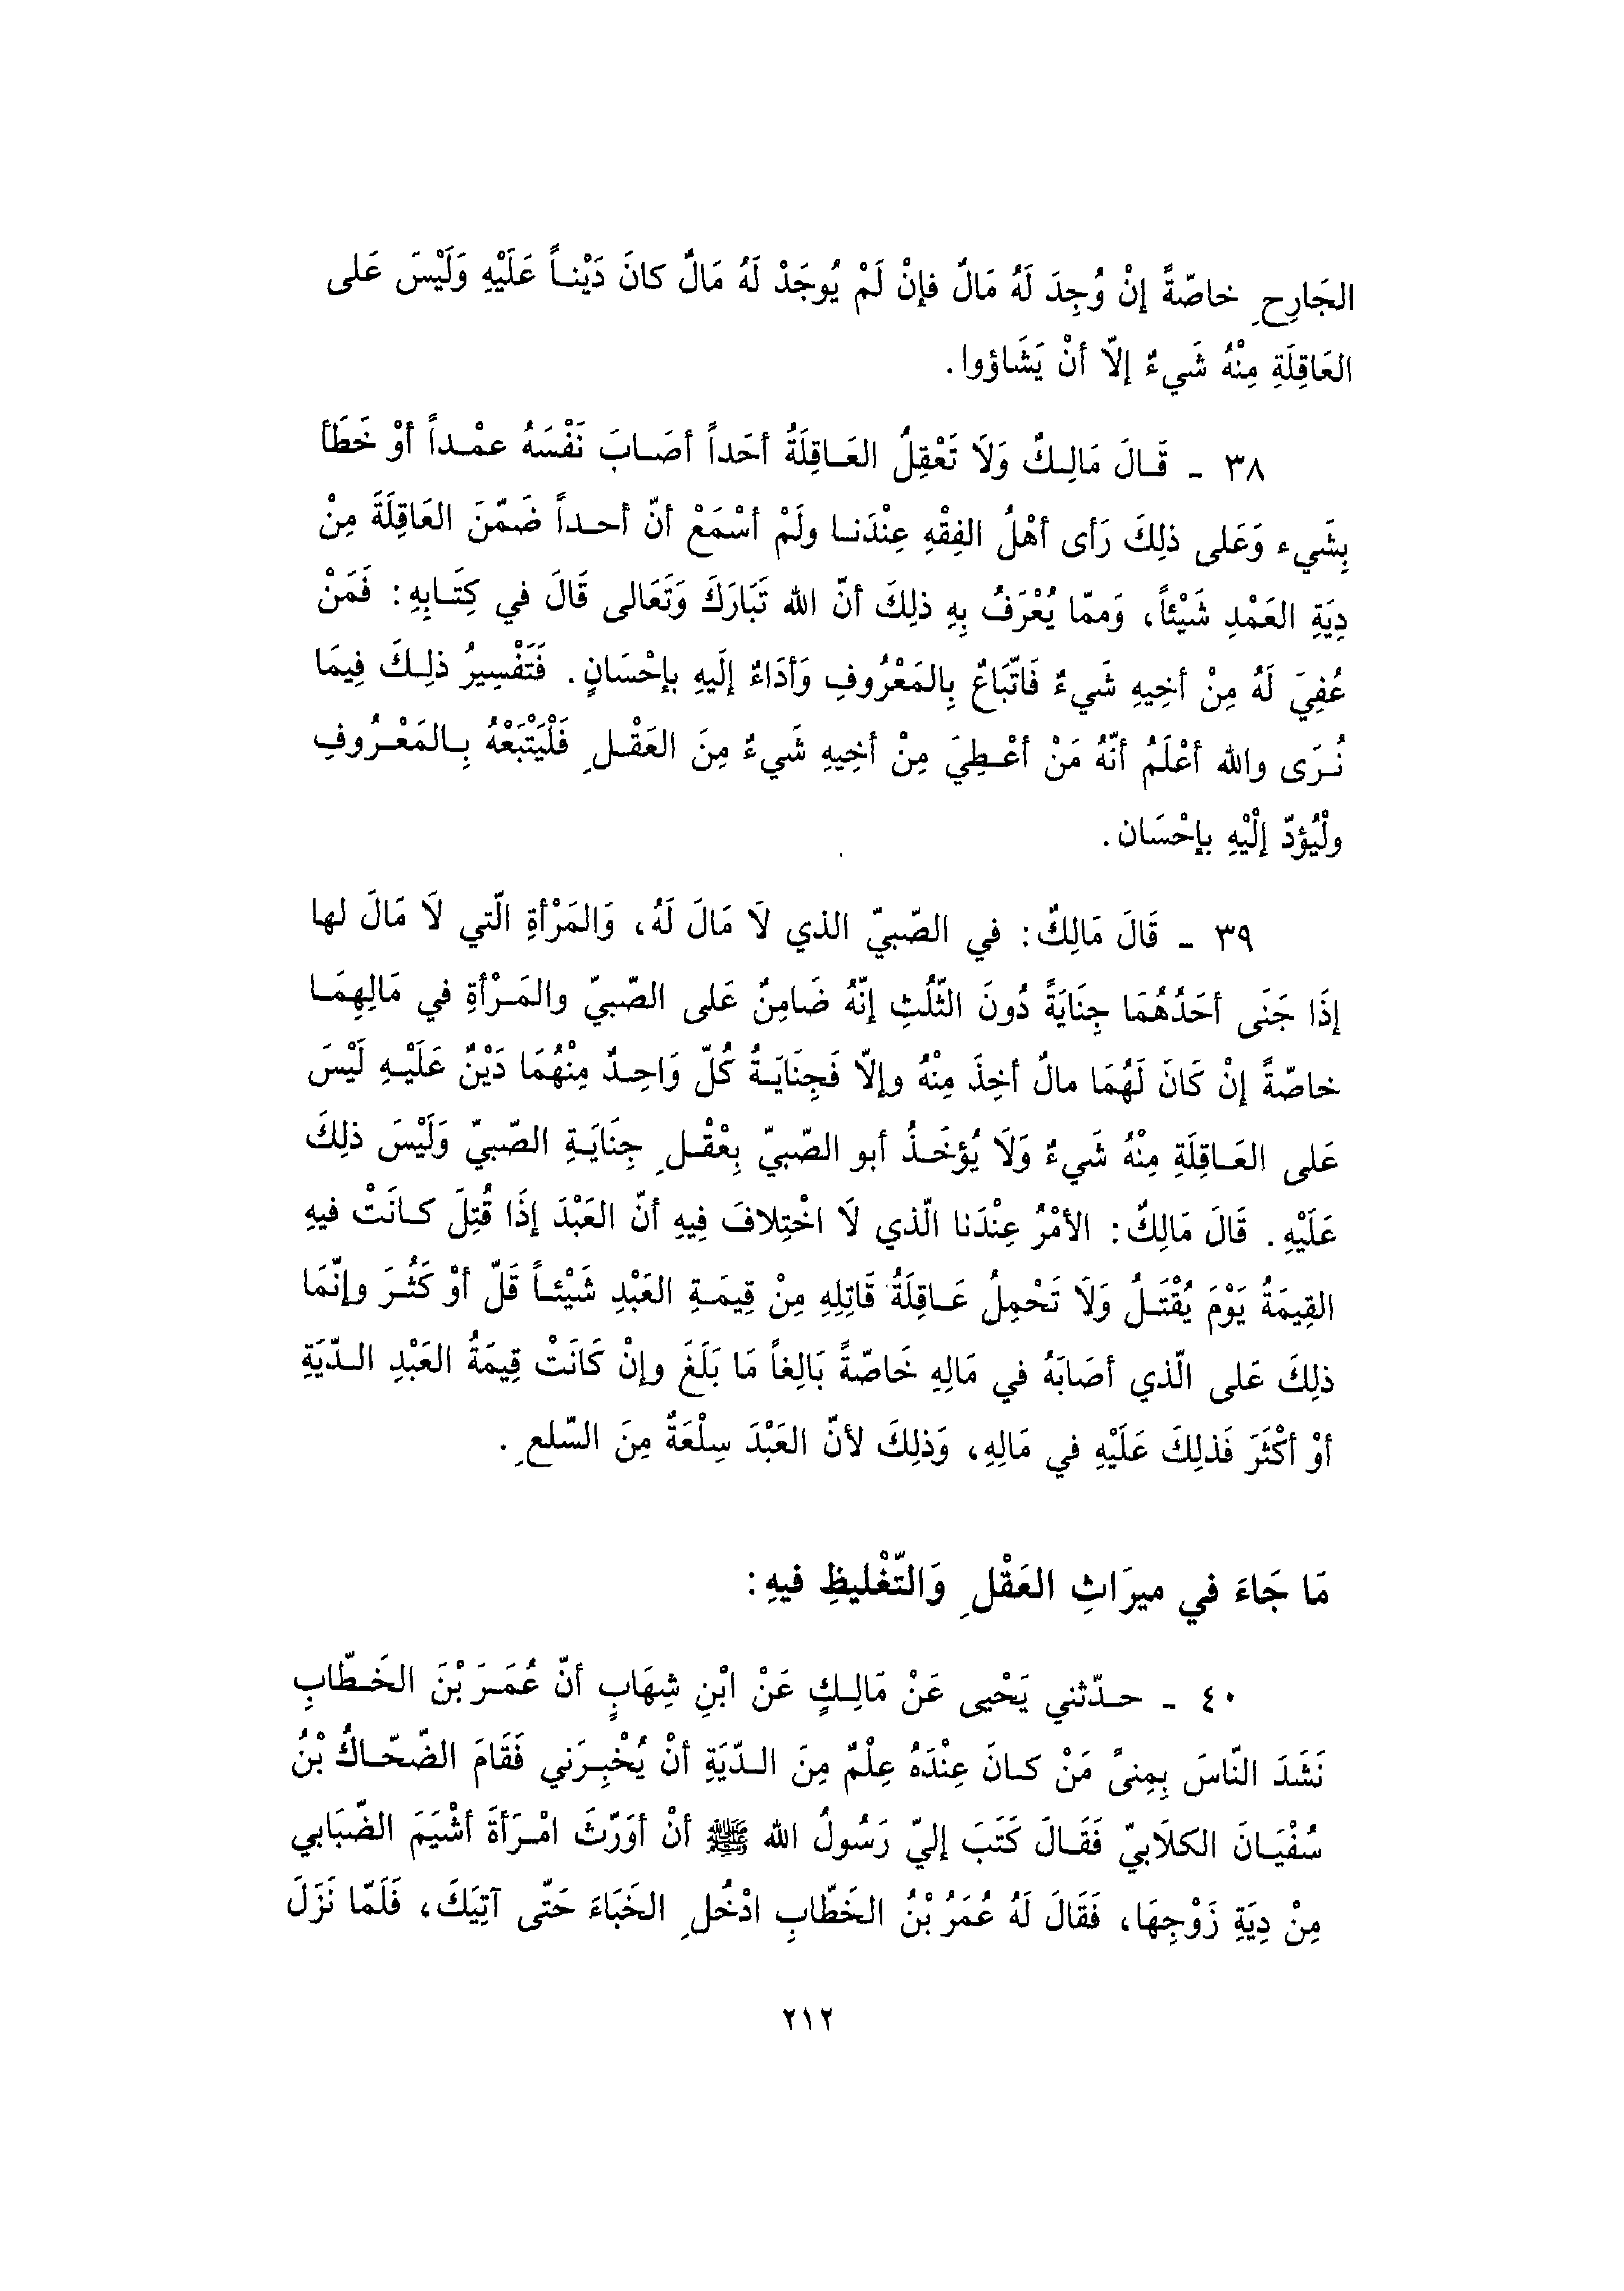 الجَارِحِ خاصّةً إنْ وُجِدَ لَهُ مَالٌ فإنْ لَمْ يُوجَدْ لَهُ مَالٌ كانَ دَيْنـاً عَلَيْهِ وَلَيْسَ عَلى
العَاقِلَةِ مِنْهُ شَيءٌ إلاّ أنْ يَشَاؤوا.
٣٨ - قَـالَ مَالِـكٌ وَلَا تَعْقِلُ العَـاقِلَةُ أحَداً أصَـابَ نَفْسَهُ عمْـداً أوْ خَطَأ
بِشَيء وَعَلى ذلِكَ رَأى أهْلُ الفِقْهِ عِنْدَنـا ولَمْ أسْمَعْ أنّ أحـداً ضَمّنَ العَاقِلَةَ مِنْ
دِيَةِ العَمْدِ شَيْئاً، وَممّا يُعْرَفُ بِهِ ذلِكَ أنّ الله تَبَارَكَ وَتَعَالى قَالَ في كِتَـابِهِ: فَمَنْ
عُفِيَ لَهُ مِنْ أخِيهِ شَيءٌ فَاتّبَاعٌ بِالمَعْرُوفِ وَأدَاءٌ إلَيهِ بإحْسَانٍ. فَتَفْسِيرُ ذلِـكَ فِيمَا
نُـرَى والله أعْلَمُ أنّهُ مَنْ أعْـطِيَ مِنْ أخِيهِ شَيءٌ مِنَ العَقْـلِ فَلْيَتْبَعْهُ بِـالمَعْـرُوفِ
ولْيُؤدّ إلَيْهِ بإحْسَان.
٣٩ - قَالَ مَالِكٌ: في الصّبيّ الذي لَا مَالَ لَهُ، وَالمَرْأةِ الّتي لَا مَالَ لها
إذَا جَنَى أحَدُهُمَا جِنَايَةً دُونَ الثّلُثِ إنّهُ ضَامِنٌ عَلى الصّبيّ والمَـرْأةِ في مَالِهِمَـا
خاصّةً إنْ كَانَ لَهُمَا مالٌ أخِذَ مِنْهُ وإلاّ فَجِنَايَـةُ كُلّ وَاحِـدٌ مِنْهُمَا دَيْنٌ عَلَيْـهِ لَيْسَ
عَلى العَـاقِلَةِ مِنْهُ شَيءٌ وَلَا يُؤخَـذُ أبو الصّبيّ بِعْقْـلِ جِنَايَـةِ الصّبيّ وَلَيْسَ ذلِكَ
عَلَيْهِ. قَالَ مَالِكٌ: الأمْرُ عِنْدَنا الّذي لَا اخْتِلافَ فِيهِ أنّ العَبْدَ إذَا قُتِلَ كـانَتْ فيهِ
القِيمَةُ يَوْمَ يُقْتَـلُ وَلَا تَحْمِلُ عَـاقِلَةُ قَاتِلِهِ مِنْ قِيمَـةِ العَبْدِ شَيْئـاً قَلّ أوْ كَثُـرَ وإنّمَا
ذلِكَ عَلى الّذي أصَابَهُ في مَالِهِ خَاصّةً بَالِغاً مَا بَلَغَ وإنْ كَانَتْ قِيمَةُ العَبْدِ الـدّيَةِ
أوْ أكْثَرَ فَذلِكَ عَلَيْهِ في مَالِهِ، وَذلِكَ لأنّ العَبْدَ سِلْعَةٌ مِنَ السّلعِ.
مَا جَاءَ في ميرَاثِ العَقْلِ وَالتّغْليظِ فيهِ:
٤٠ - حـدّثني يَحْيى عَنْ مَالِـكٍ عَنْ ابْنِ شِهَابٍ أنّ عُمَـرَ بْنَ الخَـطّابِ
نَشَدَ النّاسَ بِمِنىً مَنْ كـانَ عِنْدَهُ عِلْمٌ مِنَ الـدّيَةِ أنْ يُخْبِـرَني فَقَامَ الضّحّـاكُ بْنُ
سُفْيَـانَ الكلَابيّ فَقَـالَ كَتَبَ إليّ رَسُولُ الله ﷺ أنْ أوَرّثَ امْـرَأةَ أشْيَمَ الضّبَابي
مِنْ دِيَةِ زَوْجِهَا، فَقَالَ لَهُ عُمَرُ بْنُ الخَطّابِ ادْخُلِ الخَبَاءَ حَتّى آتِيَكَ، فَلَمّا نَزَلَ
٢١٢